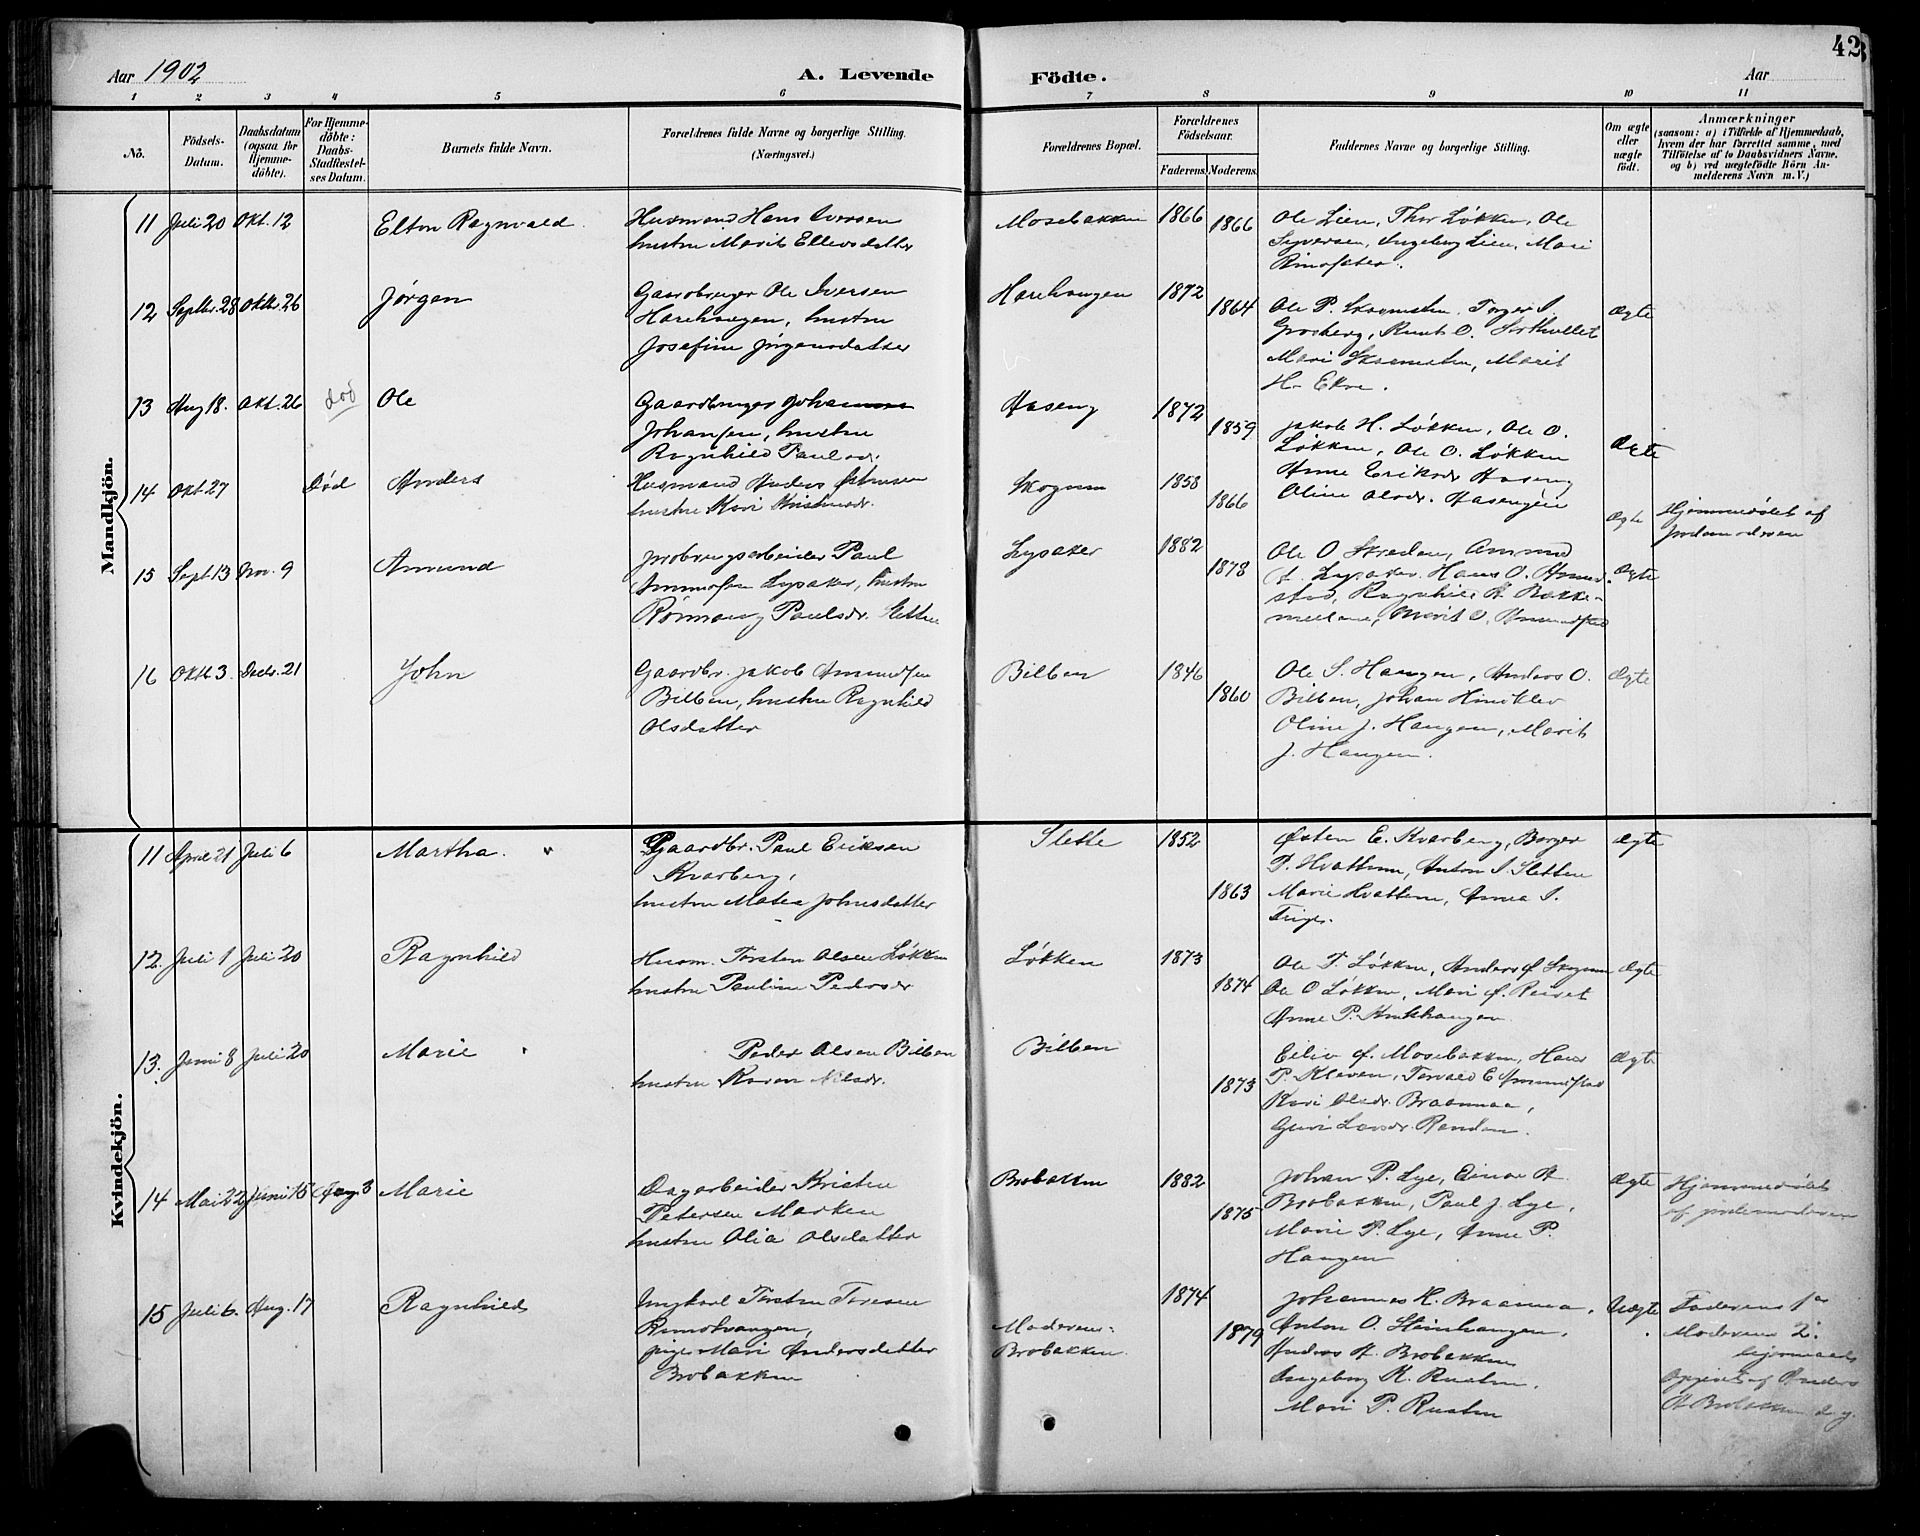 Aar 1902
A. Levende
Födte.
Aar
42
1 2 3 4 5 6 7 8 9 10 11
No.
Födsels-
Datum.
Daabsdatum
(ogsaa for
Hjemme-
döbte).
For Hjemme-
döbte:
Daabs-
Stadfæstel-
ses Datum.
Barnets fulde Navn.
Forældrenes fulde Navne og borgerlige Stilling.
(Næringsvei.)
Forældrenes Bopæl.
Forældrenes
Födselsaar.
Faderens. Moderens.
Faddernes Navne og borgerlige Stilling.
Om ægte
eller
uægte
födt.
Anmærkninger
(saasom: a) i Tilfælde af Hjemmedaab,
hvem der har forrettet samme, med
Tilföielse af to Daabsvidners Navne,
og b) ved uægtefödte Börn An-
melderens Navn m. V.)
Mandkjön.
11 Juli 20 Okt. 12 Elton Ragnvald
Husmand Hans Iversen
hustru Marit Ellevsdatter
Mosebakken 1866 1866
Ole Lien, Thor Løkken, Ole
Syversen, Ingeborg Lien, Mari
12 Septbr. 28 Oktbr. 26 Jørgen
Gaardbruger Ole Iversen
Harehaugen, hustru
Josefine Jørgensdatter
Harehaugen 1872 1864
Ole P. Skremsten, Torger I.
Grosberg, Knut O.
Mari Skremsten, Marit
H. Ekre.
Ægte
13 Aug 18. Okt. 26 død Ole
Gaardbruger
Johansen, hustru
Ragnhild Paulsdr.
Haseng 1872 1859
Jakob H. Løkken, Ole O.
Løkken, Ole O. Løkken
Anne Eriksdr Haseng
Oline Olsdr. Hasengen
Ægte
14 Okt 27 Død Anders
Husmand Anders Østensen
hustru Kari Kristensdr.
Skogum 1858 1866
Ægte
Hjemmedøbt af
Jordemoderen
15 Sept 13 Nov. 9 Amund
Jordbrugsarbeider Paul
Amundsen Lysaker, hustru
Rønnaug Paulsdr. Sletten
Lysaker 1882 1878
Ole O. Skreden, Ammund
A. Lysaker, Hans O. Amund-
stad, Ragnhild A. Bække-
mellem, Marit O. Amundstad
Ægte
16 Oktb 3 Decbr. 21 John
Gaardbr. Jakob Amundsen
Bilben, hustru Ragnhild
Olsdatter
Bilben 1846 1860
Ole S. Haugen, Anders O.
Bilben, Johan Hinsklev
Oline J. Haugen, Marit
J. Haugen.
Ægte
Kvindekjön.
11 April 21 Juli 6 Martha.
Gaardbr. Paul Eriksen
Kvarberg,
hustru Matea Johnsdatter
Slette 1852 1863
Østen E. Kvarberg, Borger
P. Hvattum, Anton I. Sletten
Marie Hvattum, Anna I.
Ægte
12. Juli 1 Juli 20 Ragnhild
Husm. Torsten Olsen Løkken
hustru Pauline Pedersdr
Løkken 1873 1874
Ole T. Løkken, Anders J. Skogum
Ole O Løkken, Mari J.
Anne P.
Ægte
13. Juni 8 Juli 20 Marie
Peder Olsen Bilben
hustru Karen Nilsdr.
Bilben 1873
Eiliv J. Mosebakken, Hans
P. Kleven, Torvald E Amundstad
Kari Olsdr. Braannaa,
Guri Larsdr. Randen.
Ægte
14 Mai 22 Juni 15 Aug. 3 Marie
Dagarbeider Kristen
Petersen Marken
hustru Olia Olsdatter
Brobakken 1882 1875
Johan P. Lye, Einar A.
Brobakken, Paul J. Lye,
Marie P. Lye, Anne P.
Haugen
Ægte
Hjemmedøbt
af jordemoderen
15 Juli 6. Aug. 17 Ragnhild
Ungkarl Torsten Toresen
pige Mari Andersdatter
Brobakken
Moderens:
Brobakken.
1874 1879
Johannes K. Braannaa,
Anton O. Steinhaugen,
Anders A. Brobakken
Ingeborg K. Rusten,
Mari P. Rusten
Uægte
Faderens 1ste
Moderens 2.
leiermaal
opgivet af Anders
A Brobakken